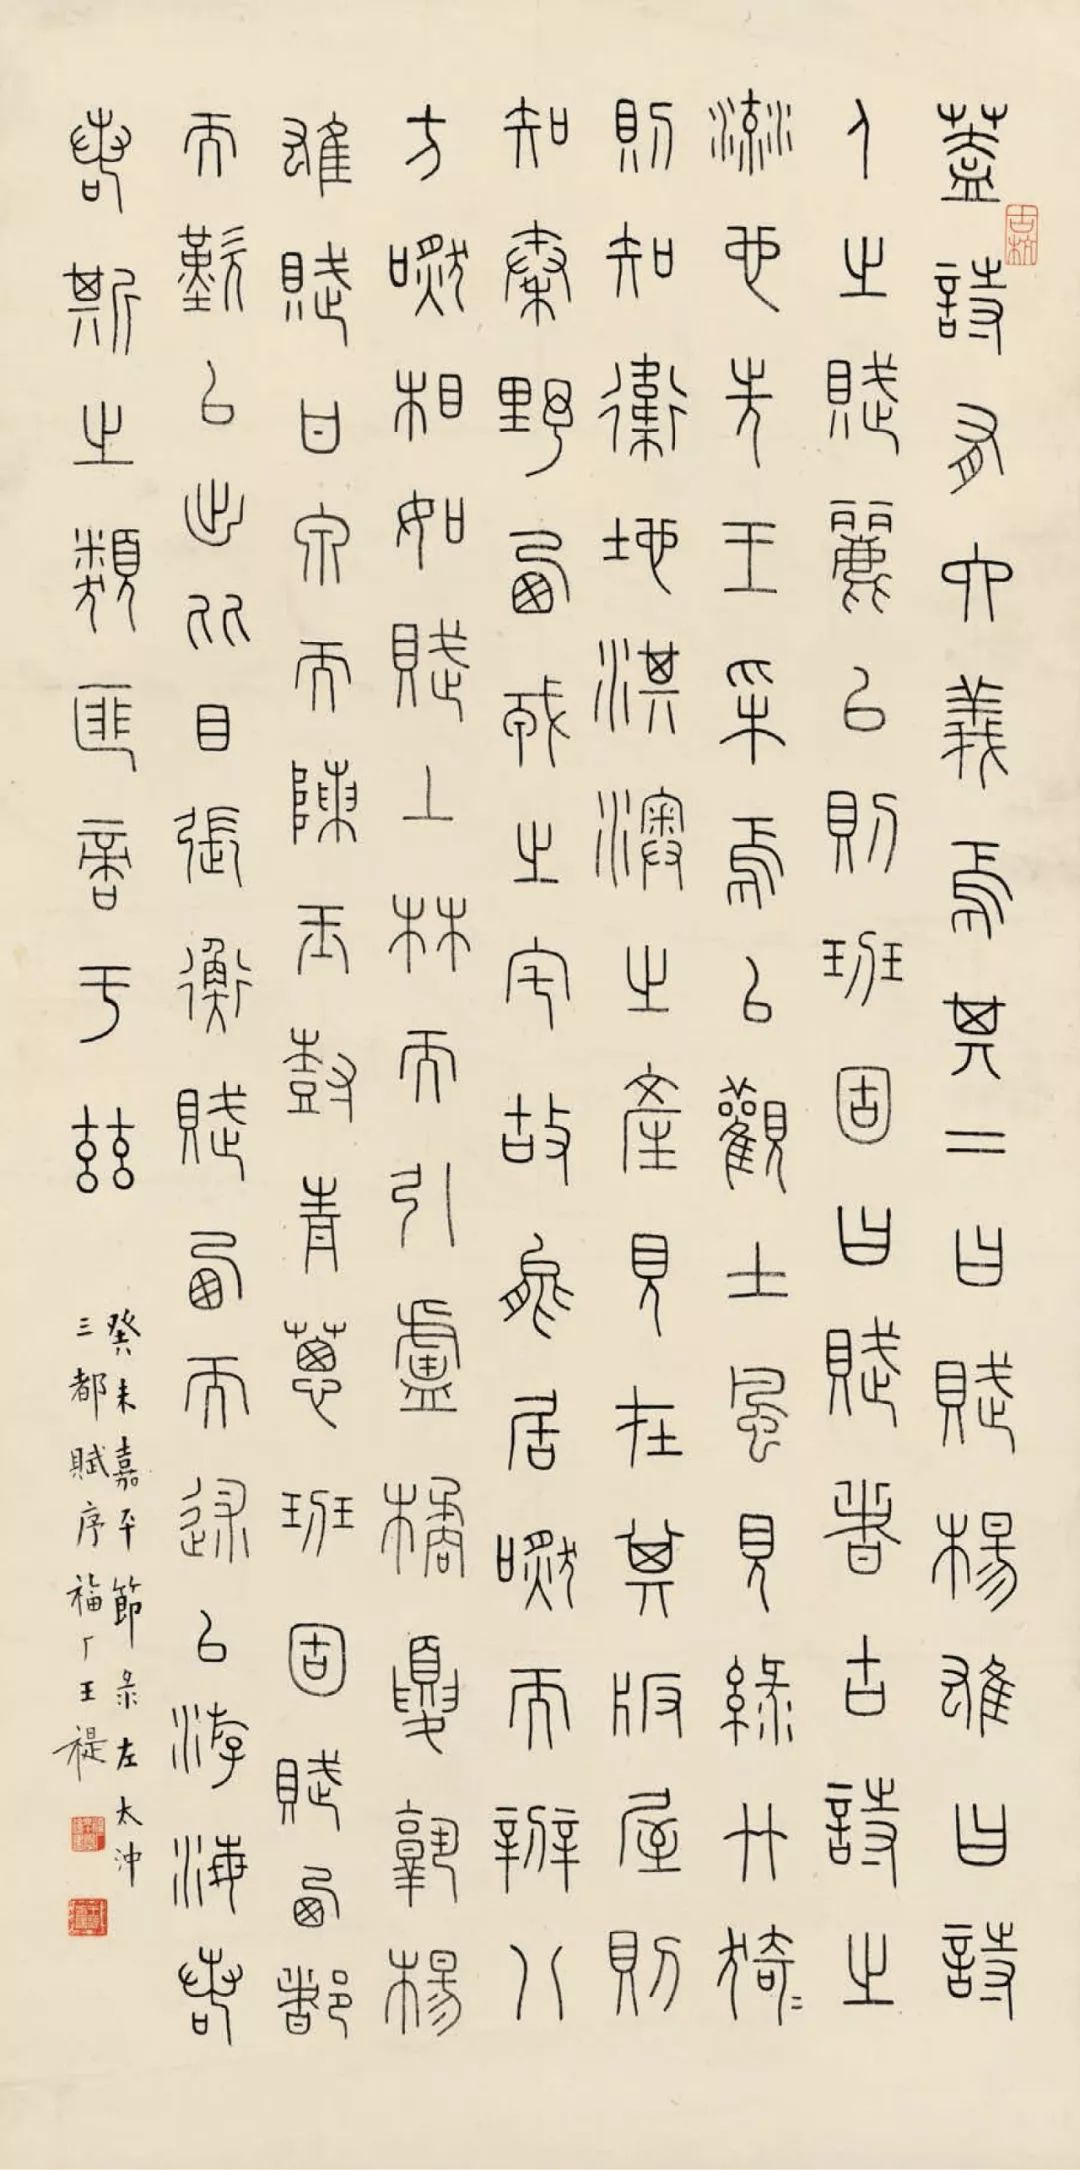 蓋詩有六義焉其二曰賦楊雄曰詩
人之賦麗以則班固曰賦者古詩之
流也先王采焉以觀土風見綠竹猗〻
則知衛地淇澳之產見在其版屋則
知秦野西戎之宅故能居然而辨八
方然相如賦上林而引盧橘夏孰楊
雄賦甘泉而陳玉尌青蔥班固賦西都
而歎以出比目張衡賦西而述以游海若
若斯之類匪啻于茲
癸未嘉平節彔左太沖
三都賦序福厂王禔
古杭